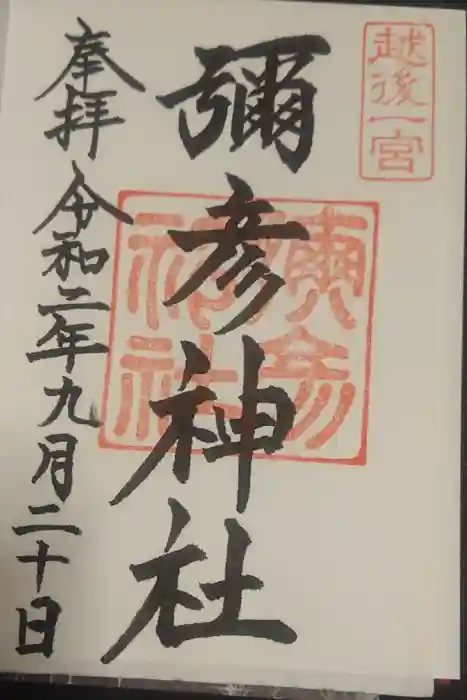 越後一宮
彌彦神社
彌彦神社
奉拝 令和二年九月二十日